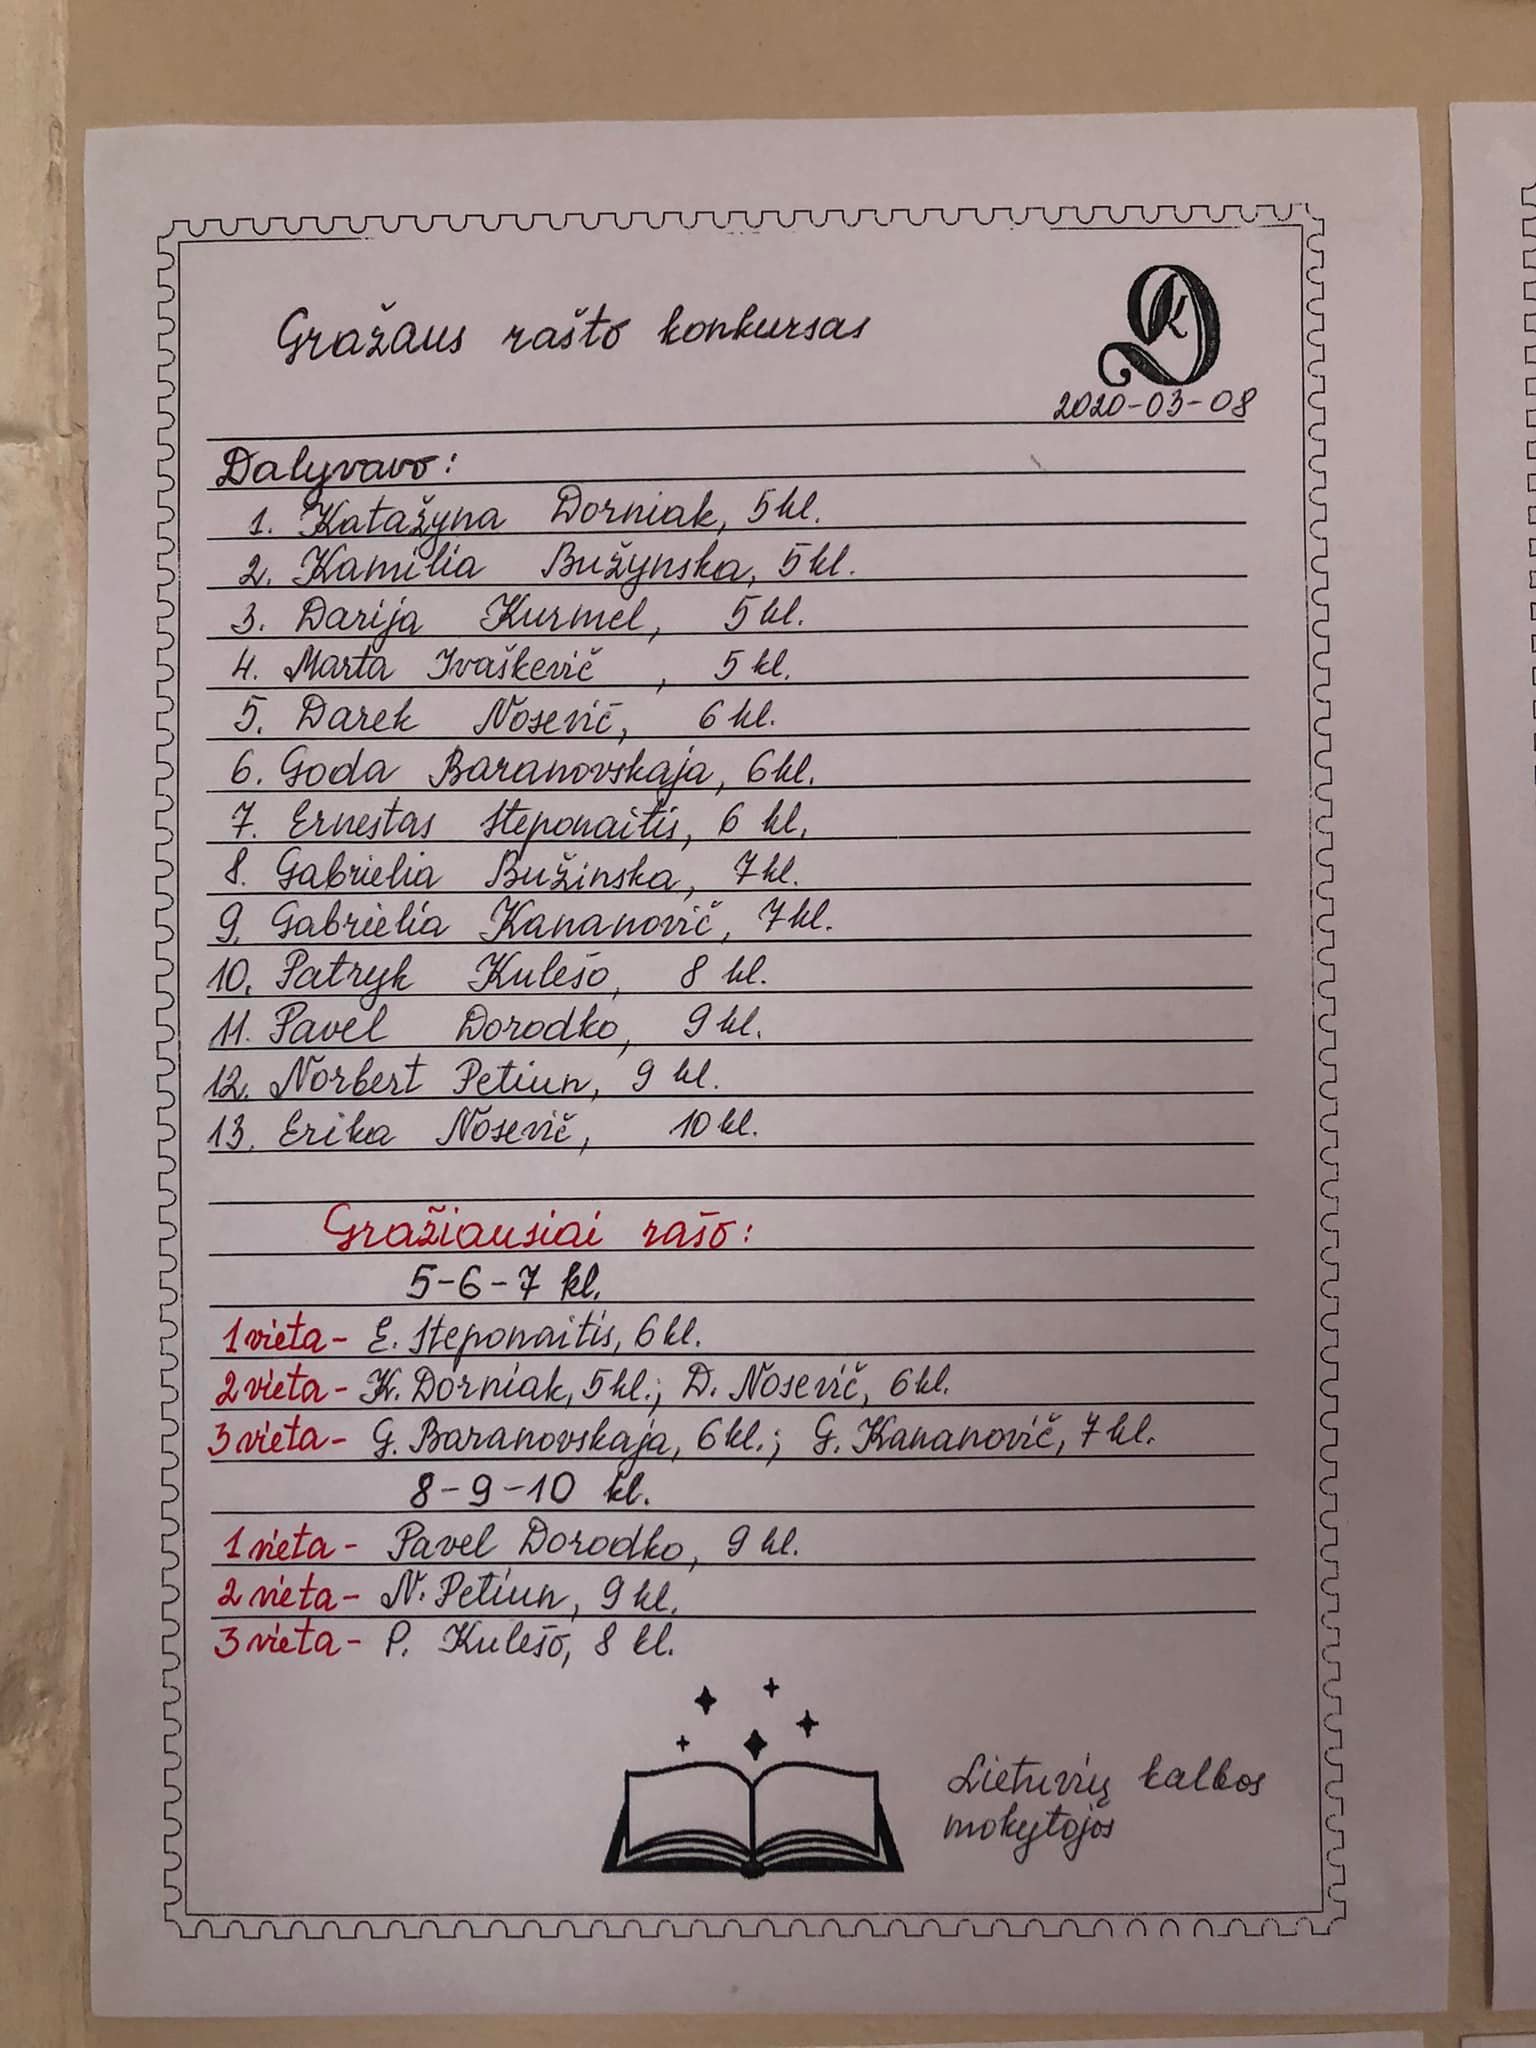 Gražaus rašto konkursas
DK
2020-03-08
Dalyvavo:
1. Katažyna Dorniak, 5 kl.
2. Kamilia Bužynska, 5 kl.
3. Darija Kurmel, 5 kl.
4. Marta Ivaškevič, 5 kl.
5. Darek Nosevič, 6 kl.
6. Goda Baranovskaja, 6 kl.
7. Ernestas Steponaitis, 6 kl.
8. Gabrielia Bužinska, 7 kl.
9. Gabrielia Kananovič, 7 kl.
10. Patryk Kulešo, 8 kl.
11. Pavel Dorodko, 9 kl.
12. Norbert Petiun, 9 kl.
13. Erika Nosevič, 10 kl.
Gražiausiai rašo:
5-6-7 kl.
1 vieta - E. Steponaitis, 6 kl.
2 vieta - K. Dorniak, 5 kl.; D. Nosevič, 6 kl.
3 vieta - G. Baranovskaja, 6 kl.; G. Kananovič, 7 kl.
8-9-10 kl.
1 vieta - Pavel Dorodko, 9 kl.
2 vieta - N. Petiun, 9 kl.
3 vieta - P. Kulešo, 8 kl.
Lietuvių kalbos
mokytojos